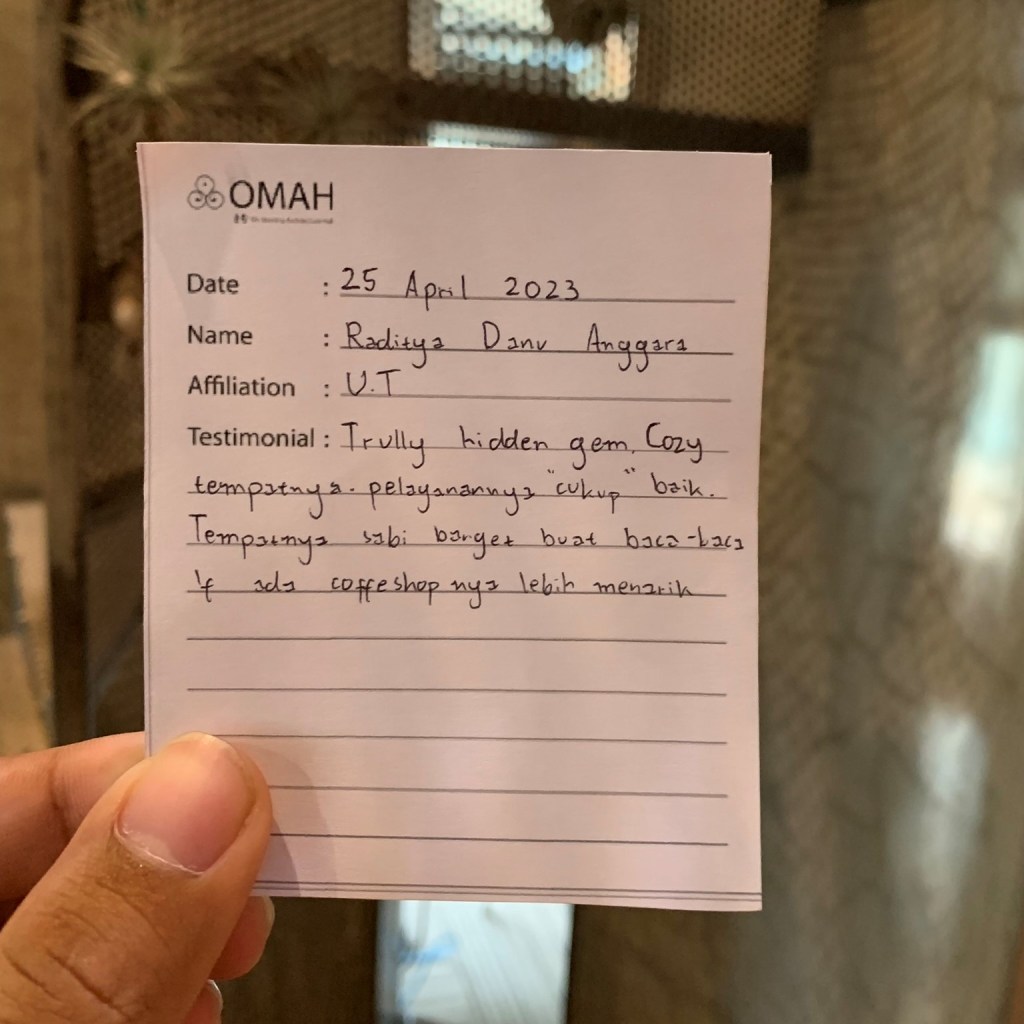 OMAH
Date : 25 April 2023
Name : Raditya Danu Anggara
Affiliation : U.T
Testimonial : Trully hidden gem, Cozy
tempatnya. pelayanannya "cukup" baik.
Tempatnya sabi banget buat baca-baca
ada coffeshopnya lebih menarik